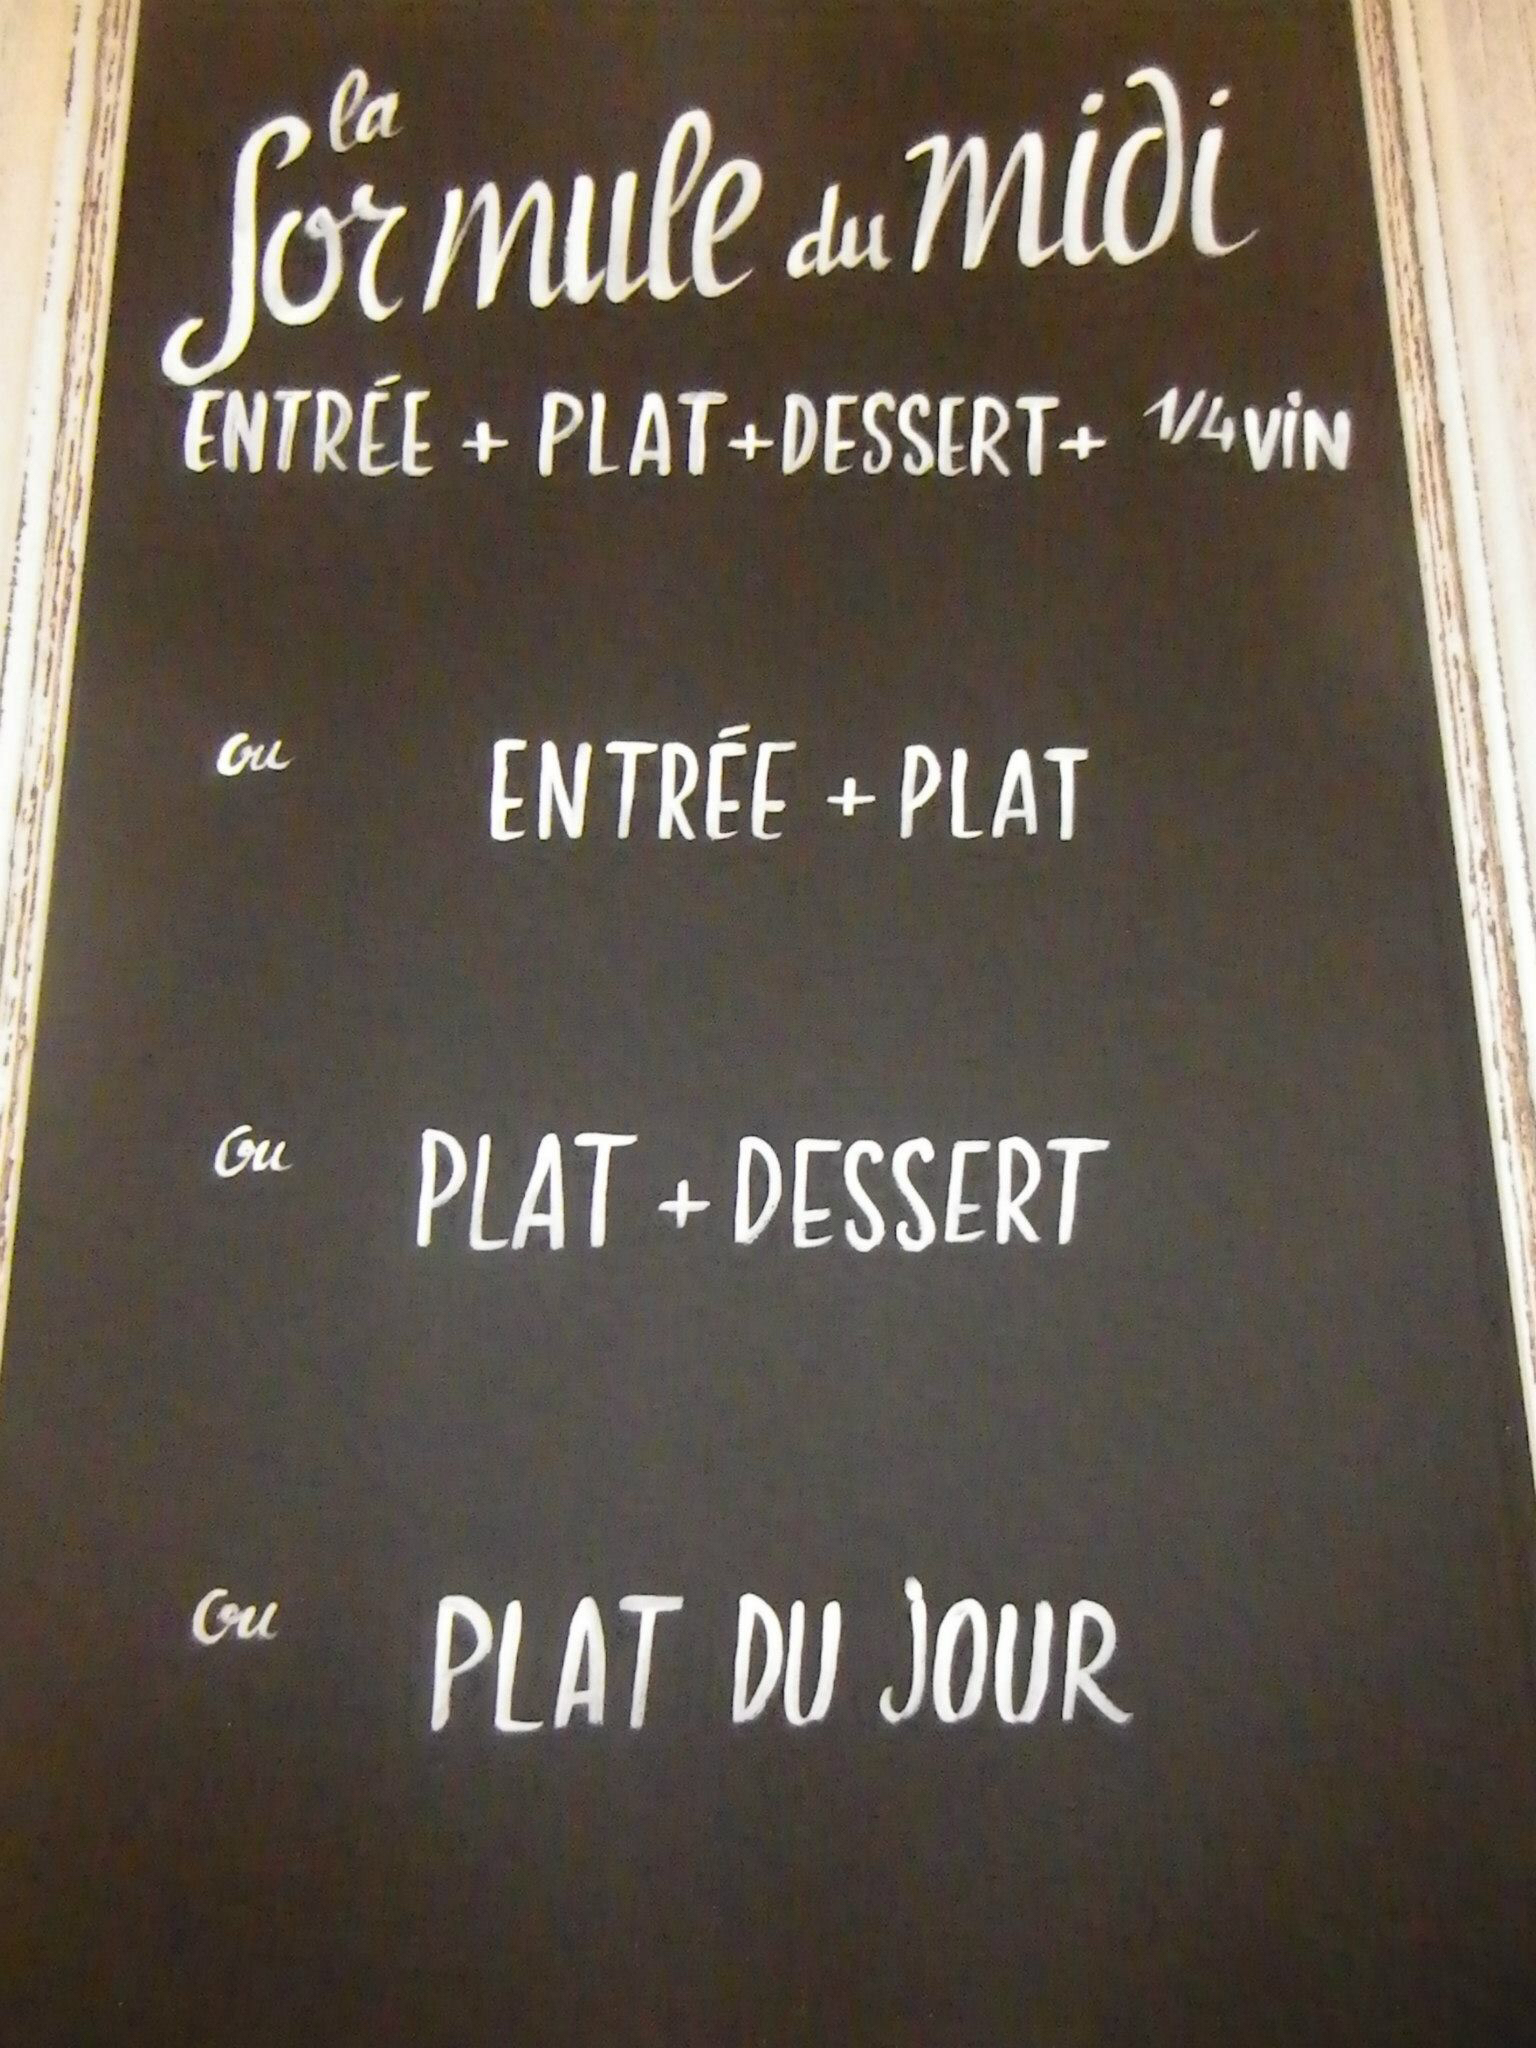 la
formule du midi
ENTRÉE + PLAT + DESSERT + 1/4 ViN
ou ENTRÉE + PLAT
ou PLAT + DESSERT
ou PLAT DU JOUR